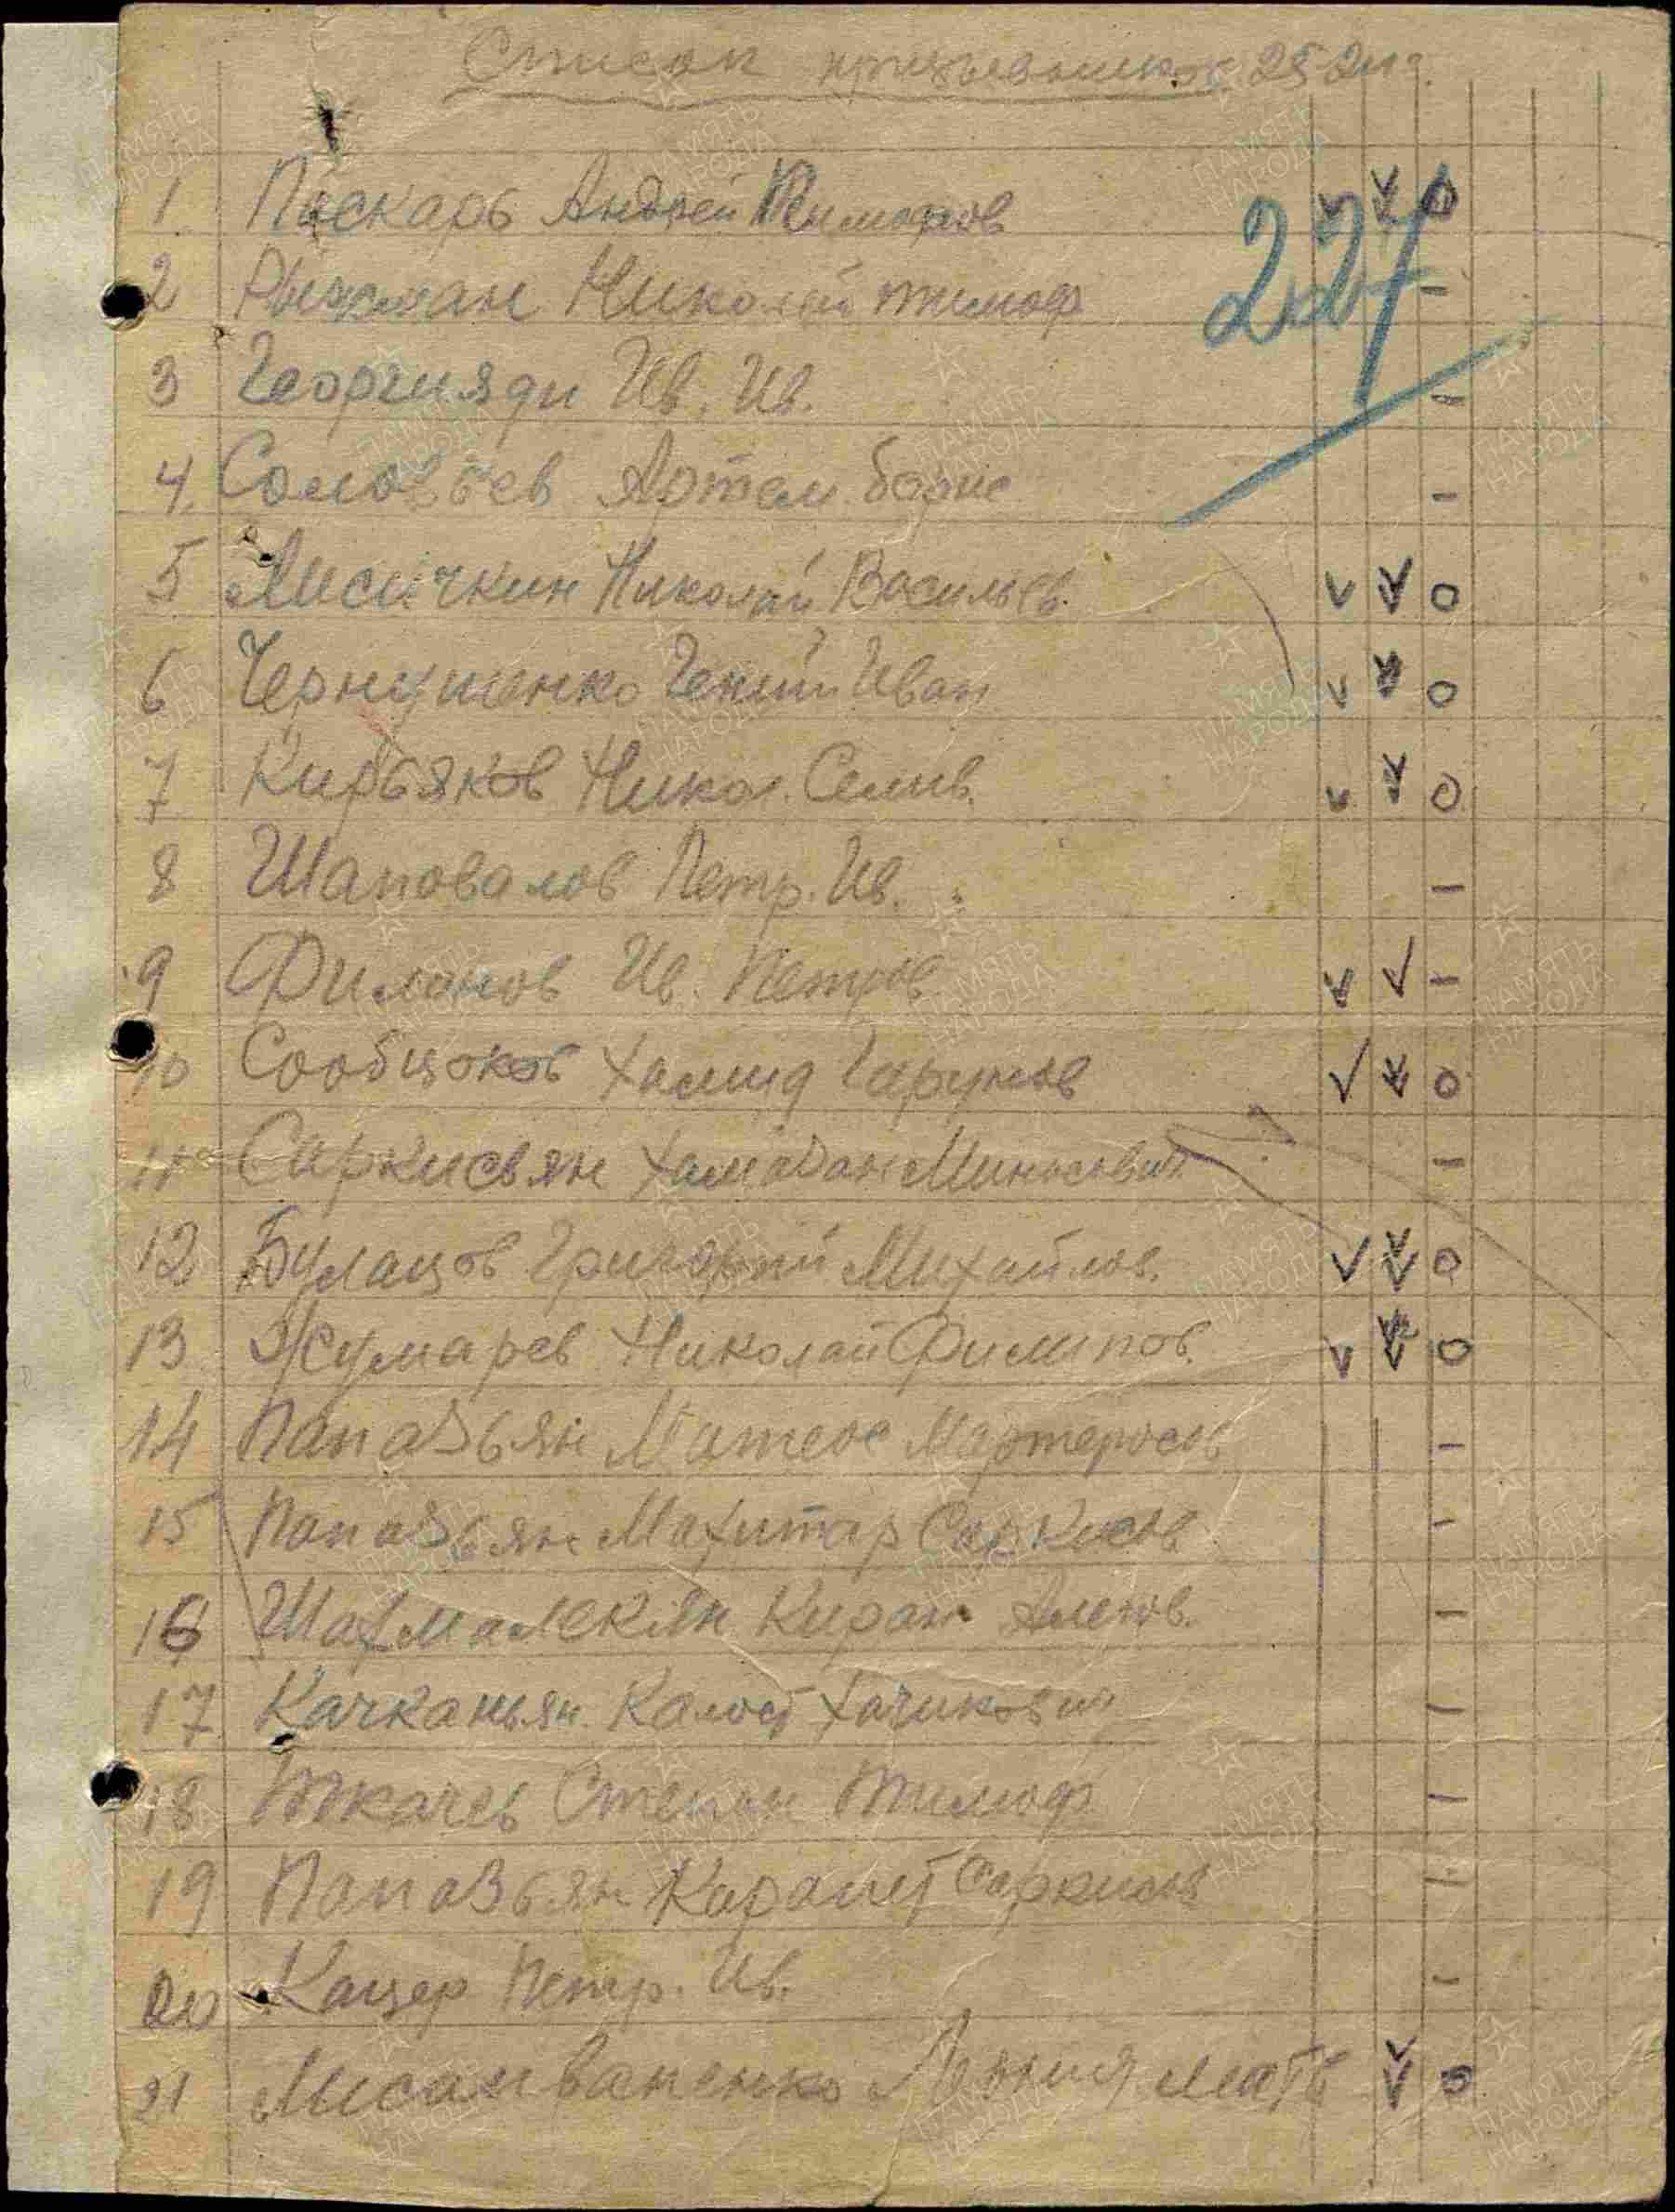 Список призывников 25 г.
227
1. Паскарь Андрей
2 Николай Тимоф
3 Георгияди Ив. Ив.
4. Соловьев Артем Борис
5 Лисичкин Николай Васильев.
6 Чернушенко Иван
7 Кирьяков Никол. Семив.
8 Шаповалов Петр. Ив.
9 Филонов Ив. Петров
10 Сообцоков Хамид Гарунов
11 Саркисвян Минасович
12 Булацов Григорий Михайлов.
13 Жумарев Николай Филипов.
14 Папазьян Матеос Мартеросов
15 Папазьян Махитар Саркисов
16 Шахмалекян Киракос
17 Качканьян Калост Хачикович
18 Ткачев Степан Тимоф
19 Папазьян Карапет Саркисов
20 Кацер Петр. Ив.
21 Мисанваненко Матв